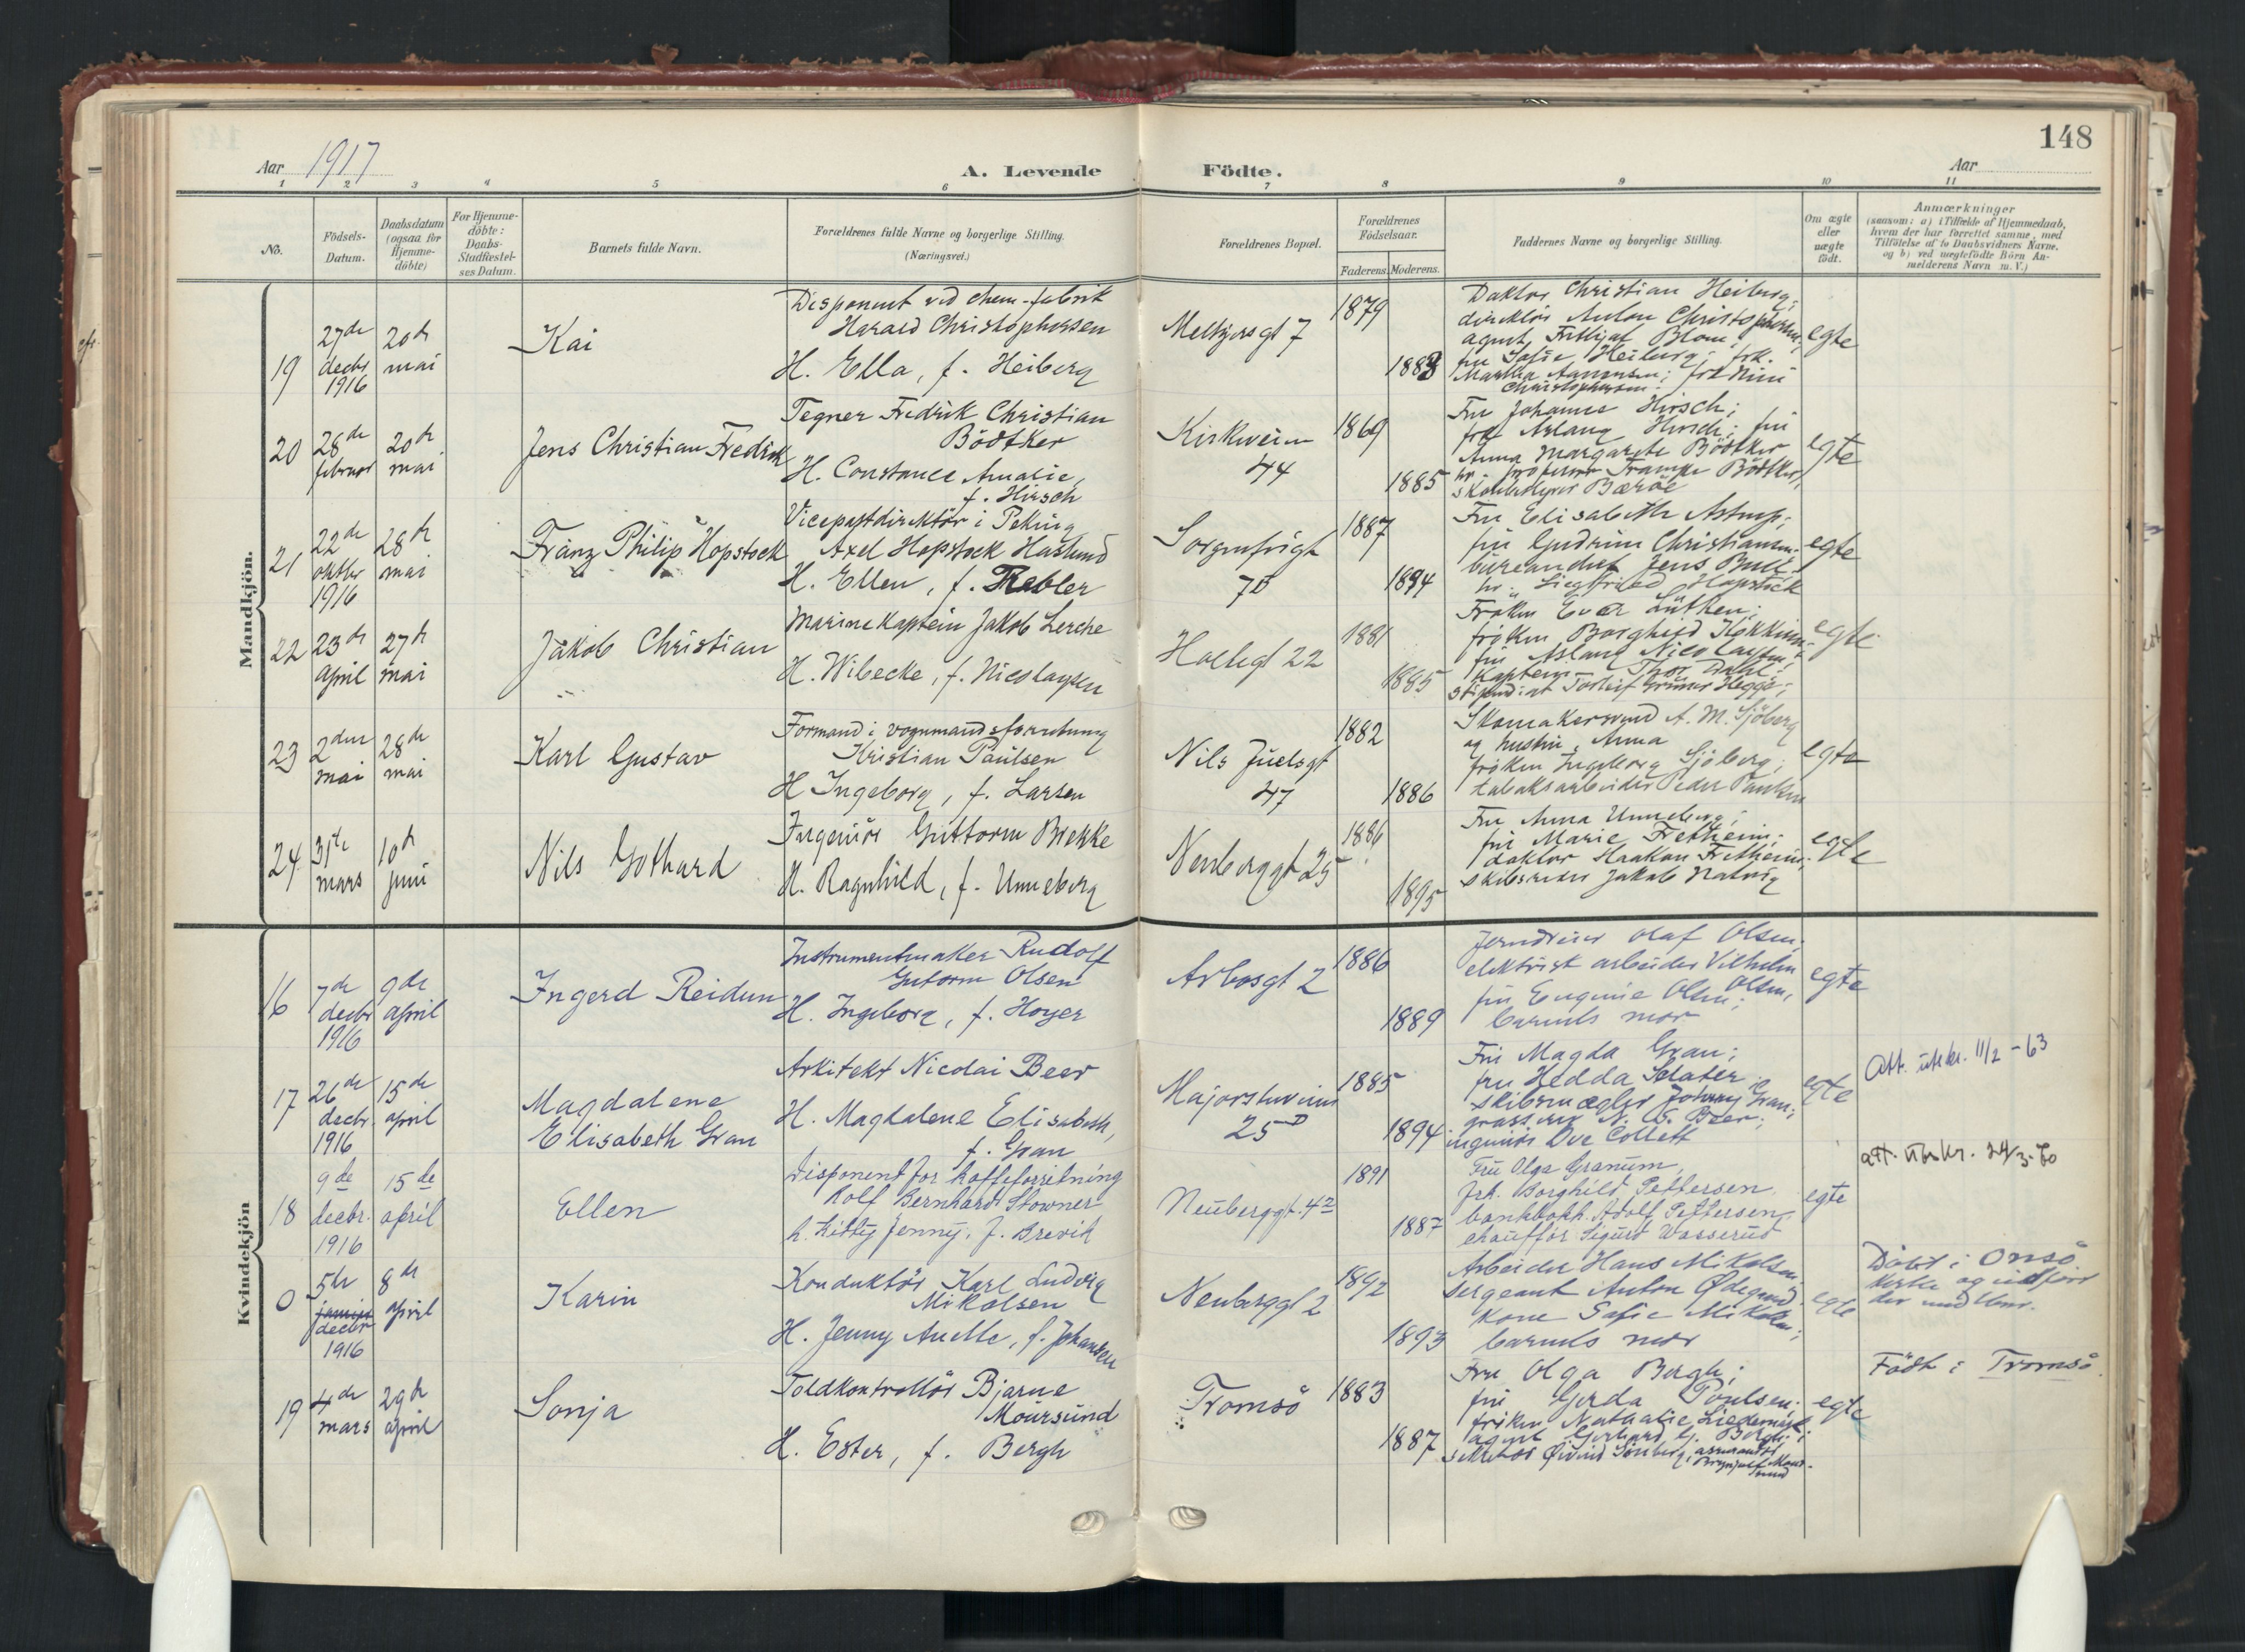 148
Aar 1917
A. Levende Födte.
Aar
1 2 3 4 5 6 7 8 9 10 11
No.
Födsels-
Datum.
Daabsdatum
(ogsaa for
Hjemme-
döbte)
For Hjemme-
döbte:
Daabs-
Stadfæstel-
ses Datum.
Barnets fulde Navn.
Forældrenes fulde Navne og borgerlige Stilling.
(Næringsvei.)
Forældrenes Bopæl.
Forældrenes
Födselsaar.
Faderens. Moderens.
Faddernes Navne og borgerlige Stilling.
Om ægte
eller
uægte
födt.
Anmærkninger
(saasom: a) i Tilfælde af Hjemmedaab,
hvem der har forrettet samme, med
Tilföielse af to Daabsvidners Navne.
og b) ved uægtefödte Börn An-
melderens Navn m. V.)
Mandkjön.
19
27de
decbr
1916
20de
mai
Kai
Disponent ved chem-fabrik
Harald Christophersen
H. Ella, f. Heiberg
Meltzersgt 7
1879
1883
Doktor Christian Heiberg;
direktör Anton Christophersen,
agent Frithjof Blom;
fru Sofie Heiberg; frk.
Martha Aamonsen; frk Mimi
Christophersen.
egte
20
28de
februar
20de
mai
Jens Christian Fredrik
Tegner Fredrik Christian
Bödtker
H. Constance Amalie,
f. Hirsch
Kirkeveien
44
1869
1885
Fru Johanne Hirsch;
frk Aslaug Hirsch; fru
Anna Margarete Bödtker
skolebestyrer Bæröe
egte
21
22de
oktbr
1916
28de
mai
Franz Philip Hopstock
Vicepostdirektör i Peking
Axel Hopstock Haslund
H. Ellen, f. Rabler
Sorgenfrigt
7B
1887
1894
Fru Elisabeth Astrup;
fru Gudrun Christiansen.
bureauchef Jens Bull.
hr. Siegfried Hopstock
egte
22
23de
april
27de
mai
Jakob Christian
Marinekaptein Jakob Lerche
H. Wibecke, f. Nicolaysen
Holtegt 22
1881
1885
Fröken Eva Lütken;
fröken Borghild
fru Aslaug Nicolaysen;
Kaptein Thor Dahl;
stipendiat Torleif Grüner Hegge;
egte.
23
2den
mai
28de
mai
Karl Gustav
Formand i vognmandsforretning
Kristian Paulsen
H Ingeborg, f. Larsen
Nils Juelsgt
47
1882
1886
Skomakersvend A. M. Sjöberg
og hustru, Anna
fröken Ingeborg Sjöberg;
tobaksarbeider Peder Paulsen
egte
24
31te
mars
10de
juni
Nils Gothard
Ingeniör Guttorm Brekke
H. Ragnhild, f. Unneberg
Neuberggt 25
1886
1895
Fru Anna Unneberg;
fru Marie Fretheim;
doktor Haakon Fretheim;
skibsreder Jakob Natvig
egte
Kvindekjön
16
7de
decbr
1916
9de
april
Ingerd Reidun
Instrumentmaker Rudolf
Gutorm Olsen
H. Ingeborg, f. Hoyer
Arbosgt 2
1886
1889
Jerndreier Olaf Olsen;
elektrisk arbeider Vilhelm
Olsen,
fru Eugenie Olsen;
barnets mor
egte
17
26de
decbr.
1916
15de
april
Magdalene
Elisabeth Gran
Arkitekt Nicolai Beer
H. Magdalene Elisabeth,
f. Gran
Majorstuveien
25D
1885
1894
Fru Magda Gran;
fru Hedda Sclater;
skibsmægler Johnny Gran;
grosserer N. A. Beer;
ingeniör Ove Collett
egte
Att. utskr. 11/2-63
18
9de
decbr.
1916
15de
april
Ellen
Disponent for kaffeforretning
Rolf Bernhard Stowner
h. Kitty Jenny. f. Brevik
Neuberggt. 4
1891
1887
Fru Olga Granum,
frk. Borghild Pettersen,
bankbokh. Adolf Pettersen,
chauffør Sigurd Wasserud
egte
att. utskr. 24/3-60
0
5te
januar
decbr
1916
8de
april
Karin
Konduktör Karl Ludvig
Mikalsen
H. Jenny Anette, f. Johansen
Neuberggt 2
1892
1893
Arbeider Hans Mikalsen
sergeant Anton Ødegaard.
Kone Sofie Mikalsen;
barnets mor
egte
Döbt i Onsö
Kirke og indfört
der med
19
4de
mars
29de
april
Sonja
Toldkontrollör Bjarne
Moursund
H. Ester, f. Bergh
Tromsö
1883
1887
Fru Olga Bergh;
fru Gerda Poulsen;
fröken Nathalie
agent Gerhard G. Bergh;
egte
Födt i Tromsö.